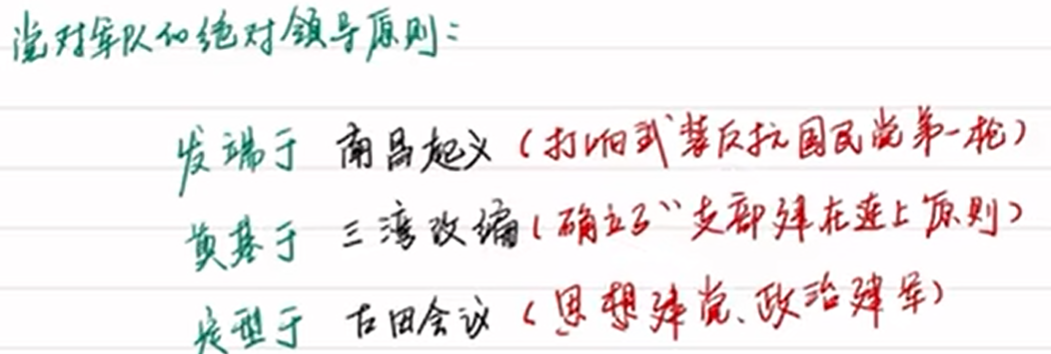 党对军队的绝对领导原则：
发端于 南昌起义（打响武装反抗国民党第一枪）
奠基于 三湾改编（确立了“支部建在连上原则）
定型于 古田会议（思想建党、政治建军）